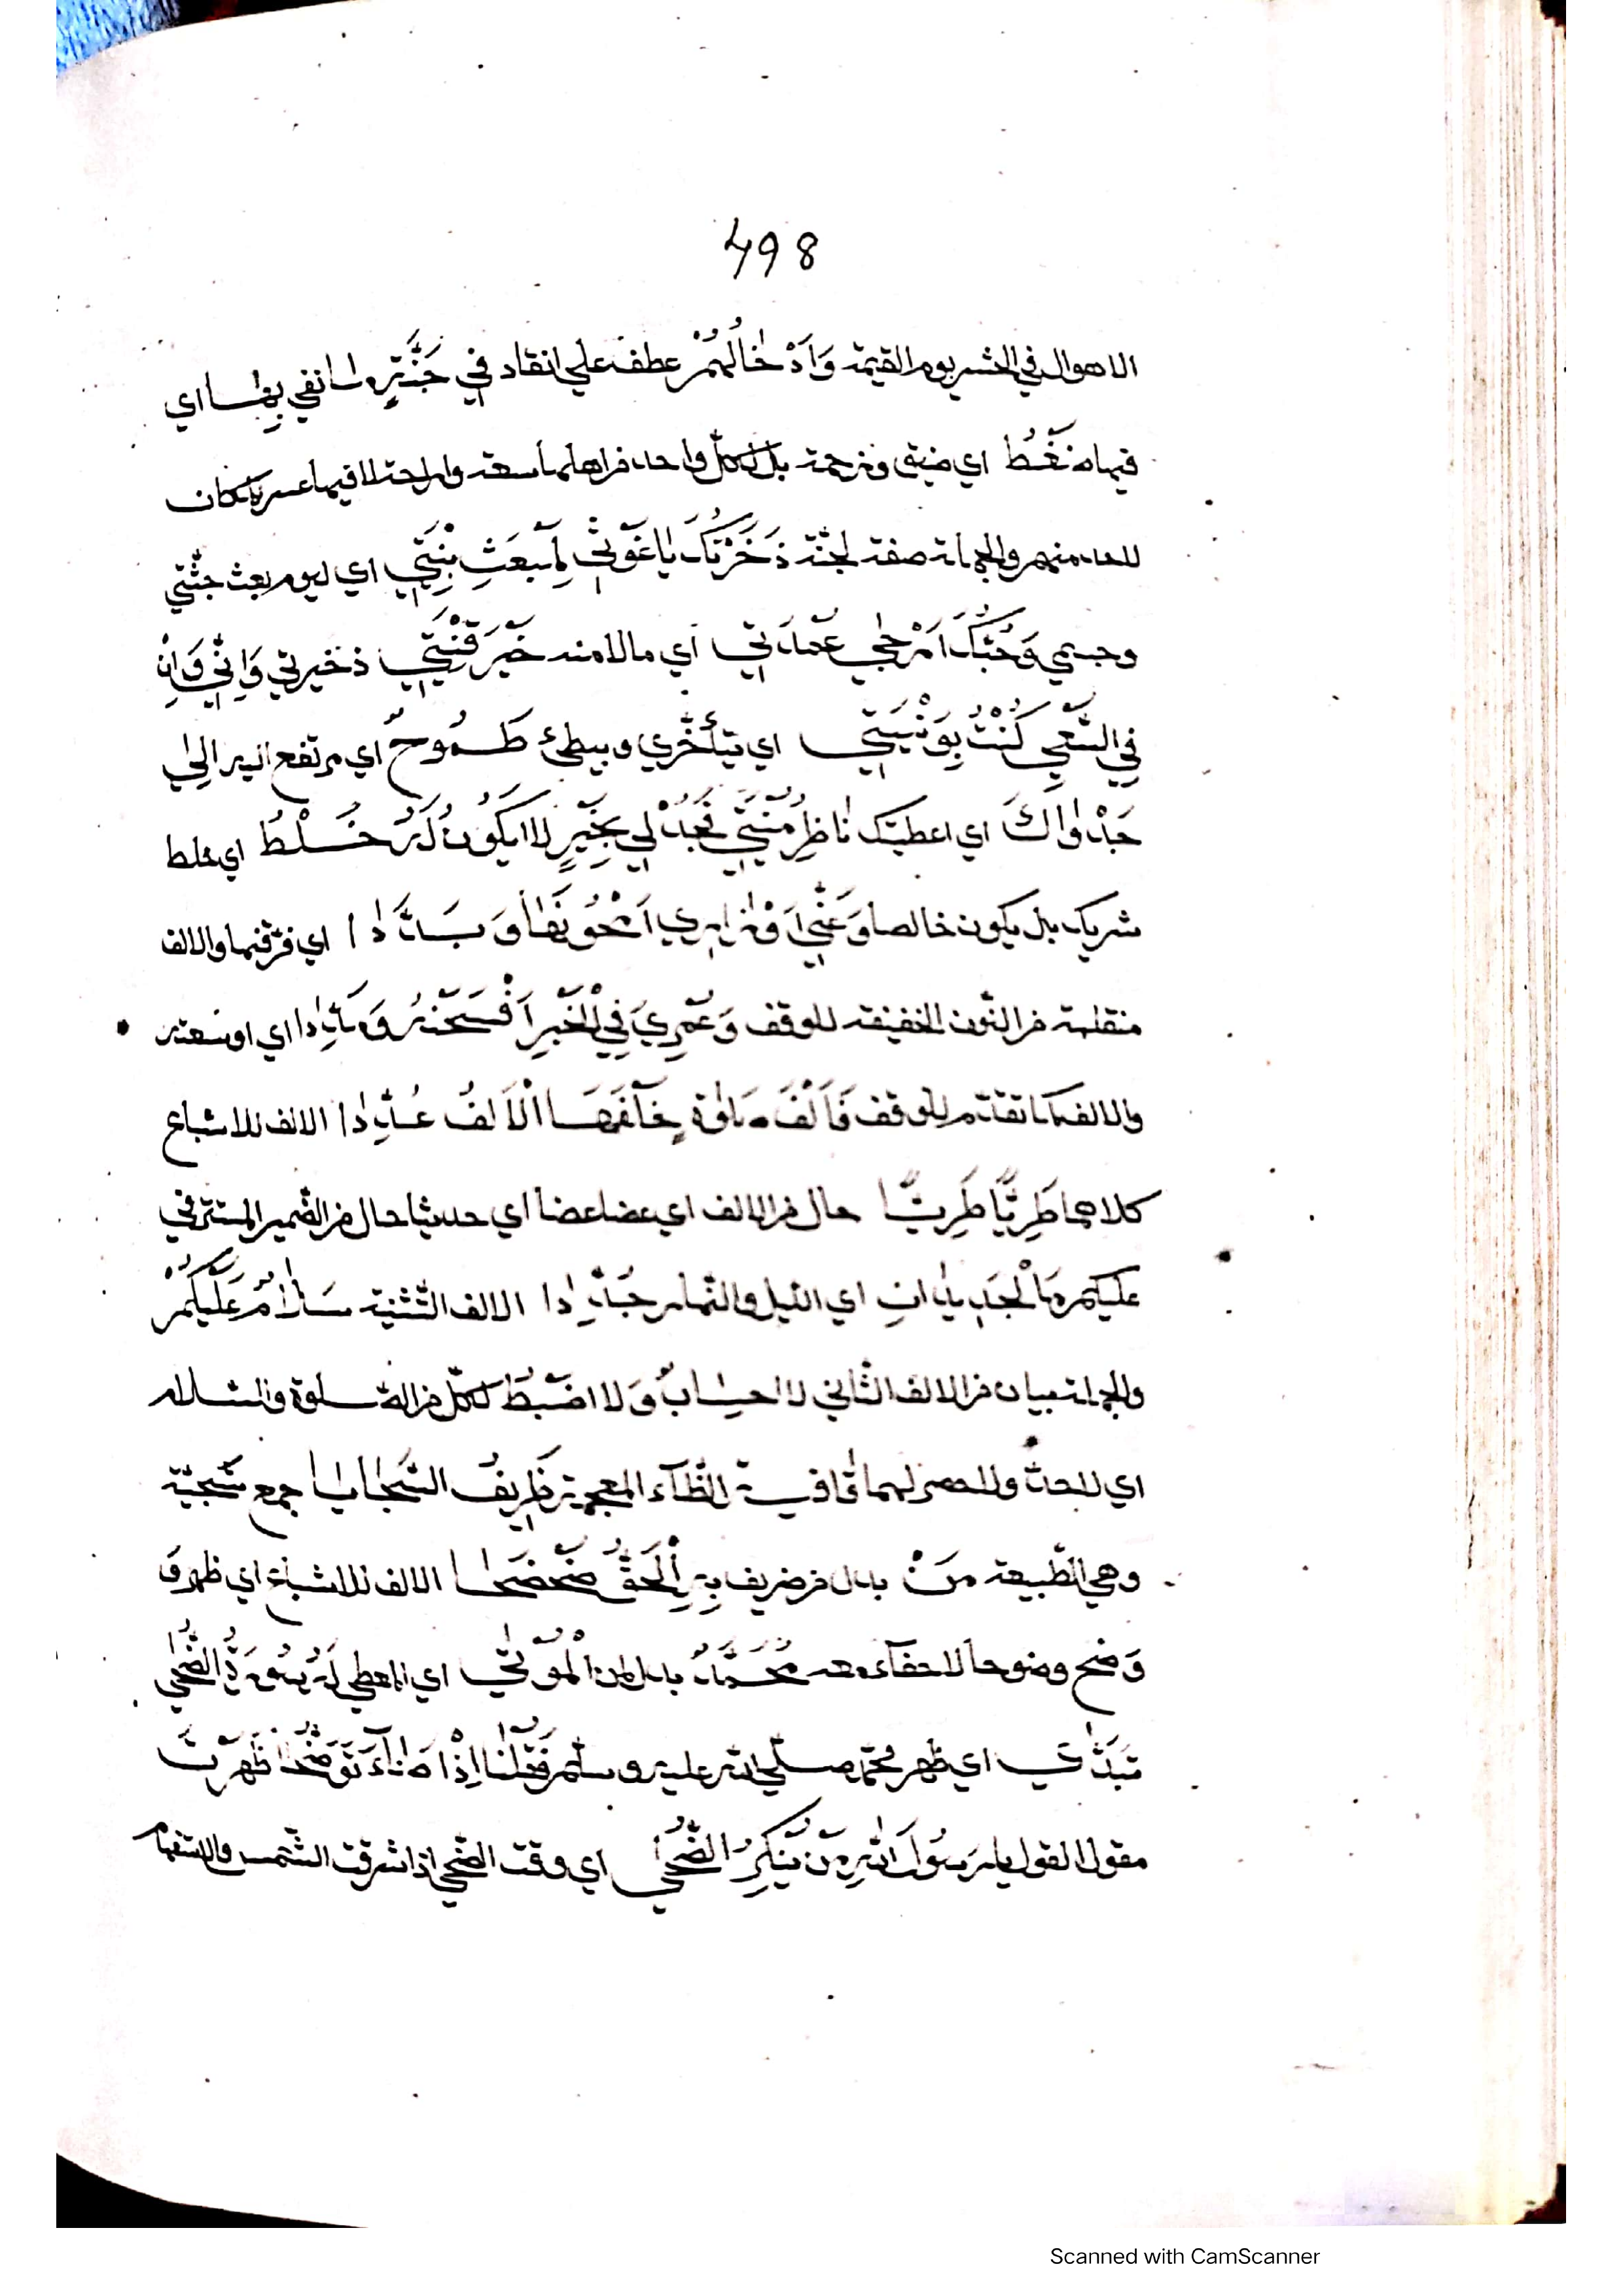 498
الاهوال في الحشر يوم القيمة وَاَدْخَالُهُمْ عطف على انقاد في جَنَّةٍ لا نفي بها اي
فيها ضَغْطُ اي ضيق وزحمة بل لكلّ واحد من اهلها سعة وراحة لا فيها عسر
للعاء منهم والجملة صفة لجنّة ذَخَرْتُكَ يَا غَوْثِي لِمَبْعَثِ بِنْيَتِي اي ليوم بعث جثّتي
وجسمي وَحُبُّكَ اَرْجٰى عُمْدَتِي اي مالا منه خَيْرَ قُنْيَتِي ذخيرتي وَاِنِّي وَاِنْ
فِي السَّعْيِ كُنْتُ بِوَنْيَتِي اي بتأخّري وبطئ طَمُوحٌ اي مرتفع البصر الٰي
جَدْوَاكَ اي اعطيتك نَاظِرُ مُنْيَتِي فَجُدْ لِي بِخَيْرٍ لَا يَكُونُ لَهُ خَلْطُ اي خلط
شريك بل يكون خالصا وَعَنِّيَ اَوْزَارِي اَمْحُوَنْهَا وَبَدِّدَا اي فرّقنها والالف
منقلبة من النّون الخفيفة للوقف وَعُمْرِيَ فِي الْخَيْرِ اَفْسِحَنْهُ وَمَدِّدَا اي اوسعته
والالف كما تقدّم للوقف فَاَلْفَ صَلٰوةٍ خَلْفَهَا الْاَلْفُ عُدِّدَا الالف للاشباع
كلاهما طَرِيًّا طَرِيًّا حال من الالف اي غضا غضا اي حديثا حال من الضّمير المستتر في
عليكم مَا الْجَدِيدَانِ اي الليل والنّهار جُدِّدَا الالف التّثنية سَلَامٌ عَلَيْكُمْ
والجملة بيان من الالف الثّاني لا حِسَابٌ وَلَا ضَبْطُ لكلّ من الصّلوة والسّلام
اي للحدّ وللحصر لهما قافية الظّآء المعجمة ظَرِيفُ السَّجَايَا جمع سَجيّة
وهي الطّبيعة مَنْ بدل من ضريف بِهِ الْحَقُّ ضَحْضَحَا الالف للاشباع اي ظهر وَ
وَضح وضوحا لا خفآء معه مُحَمَّدُ بدل من الْمُؤْتٰي اي المعطي لَهُ سُورَةُ الضُّحٰي
تَبَدّٰي اي ظهر محمّد صلّي الله عليه وسلّم فَقُلْنَا اِذْ اَضَآءَ تَوَضُّحًا ظَهَرْتَ
مقول القول يا رَسُولَ اللّهِ مَنْ يُنْكِرُ الضُّحٰي اي وقت الضّحي اذا شرقت الشّمس والاستفهام
Scanned with CamScanner